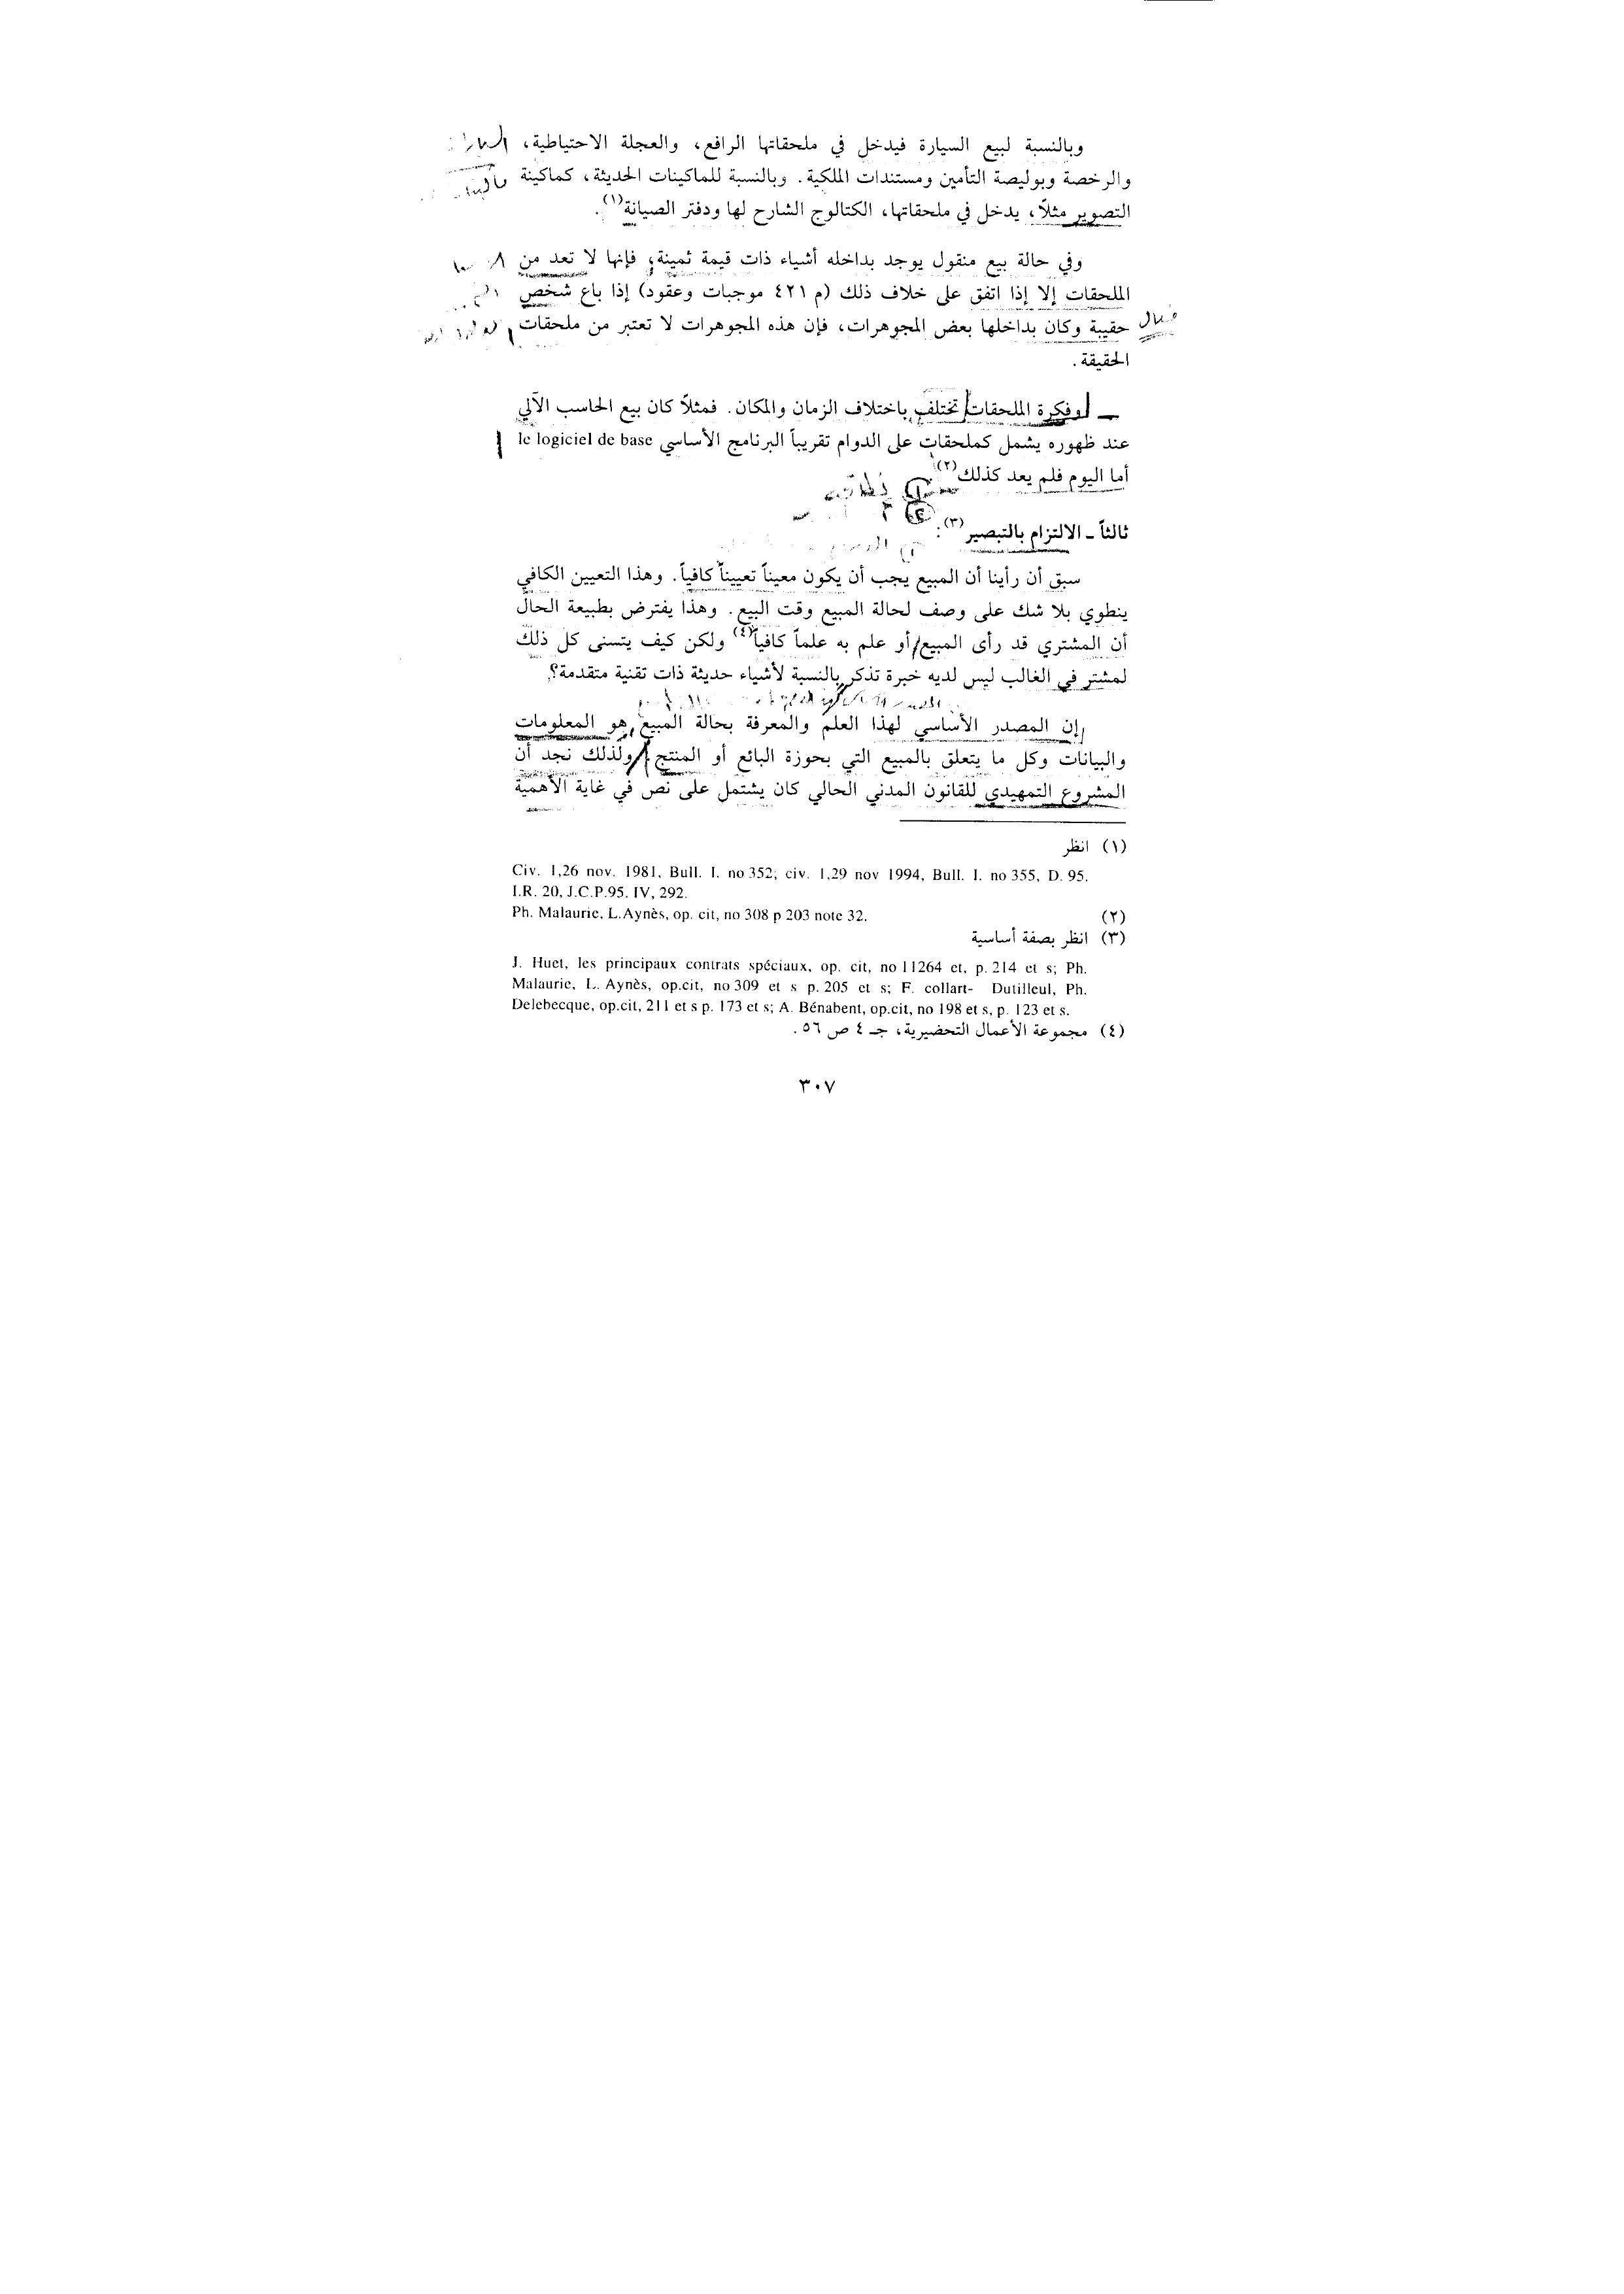 وبالنسبة لبيع السيارة فيدخل في ملحقاتها الرافع، والعجلة الاحتياطية،
والرخصة وبوليصة التأمين ومستندات الملكية. وبالنسبة للماكينات الحديثة، كماكينة
التصوير مثلاً، يدخل في ملحقاتها، الكتالوج الشارح لها ودفتر الصيانة(١).
وفي حالة بيع منقول يوجد بداخله أشياء ذات قيمة ثمينة، فإنها لا تعد من
الملحقات إلا إذا اتفق على خلاف ذلك (م ٤٢١ موجبات وعقود) إذا باع شخص
مثال
حقيبة وكان بداخلها بعض المجوهرات، فإن هذه المجوهرات لا تعتبر من ملحقات
الحقيقة.
ـ وفكرة الملحقات تختلف باختلاف الزمان والمكان. فمثلاً كان بيع الحاسب الآلي
عند ظهوره يشمل كملحقات على الدوام تقريباً البرنامج الأساسي le logiciel de base
أما اليوم فلم يعد كذلك(٢).
ثالثاً ـ الالتزام بالتبصير(٣):
سبق أن رأينا أن المبيع يجب أن يكون معيناً تعييناً كافياً. وهذا التعيين الكافي
ينطوي بلا شك على وصف لحالة المبيع وقت البيع. وهذا يفترض بطبيعة الحال
أن المشتري قد رأى المبيع أو علم به علماً كافياً(٤) ولكن كيف يتسنى كل ذلك
لمشتر في الغالب ليس لديه خبرة تذكر بالنسبة لأشياء حديثة ذات تقنية متقدمة؟
إن المصدر الأساسي لهذا العلم والمعرفة بحالة المبيع هو المعلومات
والبيانات وكل ما يتعلق بالمبيع التي بحوزة البائع أو المنتج. ولذلك نجد أن
المشروع التمهيدي للقانون المدني الحالي كان يشتمل على نص في غاية الأهمية
(١) انظر
Civ. 1,26 nov. 1981, Bull. I. no 352; civ. 1,29 nov 1994, Bull. I. no 355, D. 95.
I.R. 20, J.C.P.95. IV, 292.
(٢) Ph. Malaurie, L.Aynès, op. cit, no 308 p 203 note 32.
(٣) انظر بصفة أساسية
J. Huet, les principaux contrats spéciaux, op. cit, no 11264 et, p. 214 et s; Ph.
Malaurie, L. Aynès, op.cit, no 309 et s p. 205 et s; F. collart- Dutilleul, Ph.
Delebecque, op.cit, 211 et s p. 173 et s; A. Bénabent, op.cit, no 198 et s, p. 123 et s.
(٤) مجموعة الأعمال التحضيرية، جـ ٤ ص ٥٦.
٣٠٧